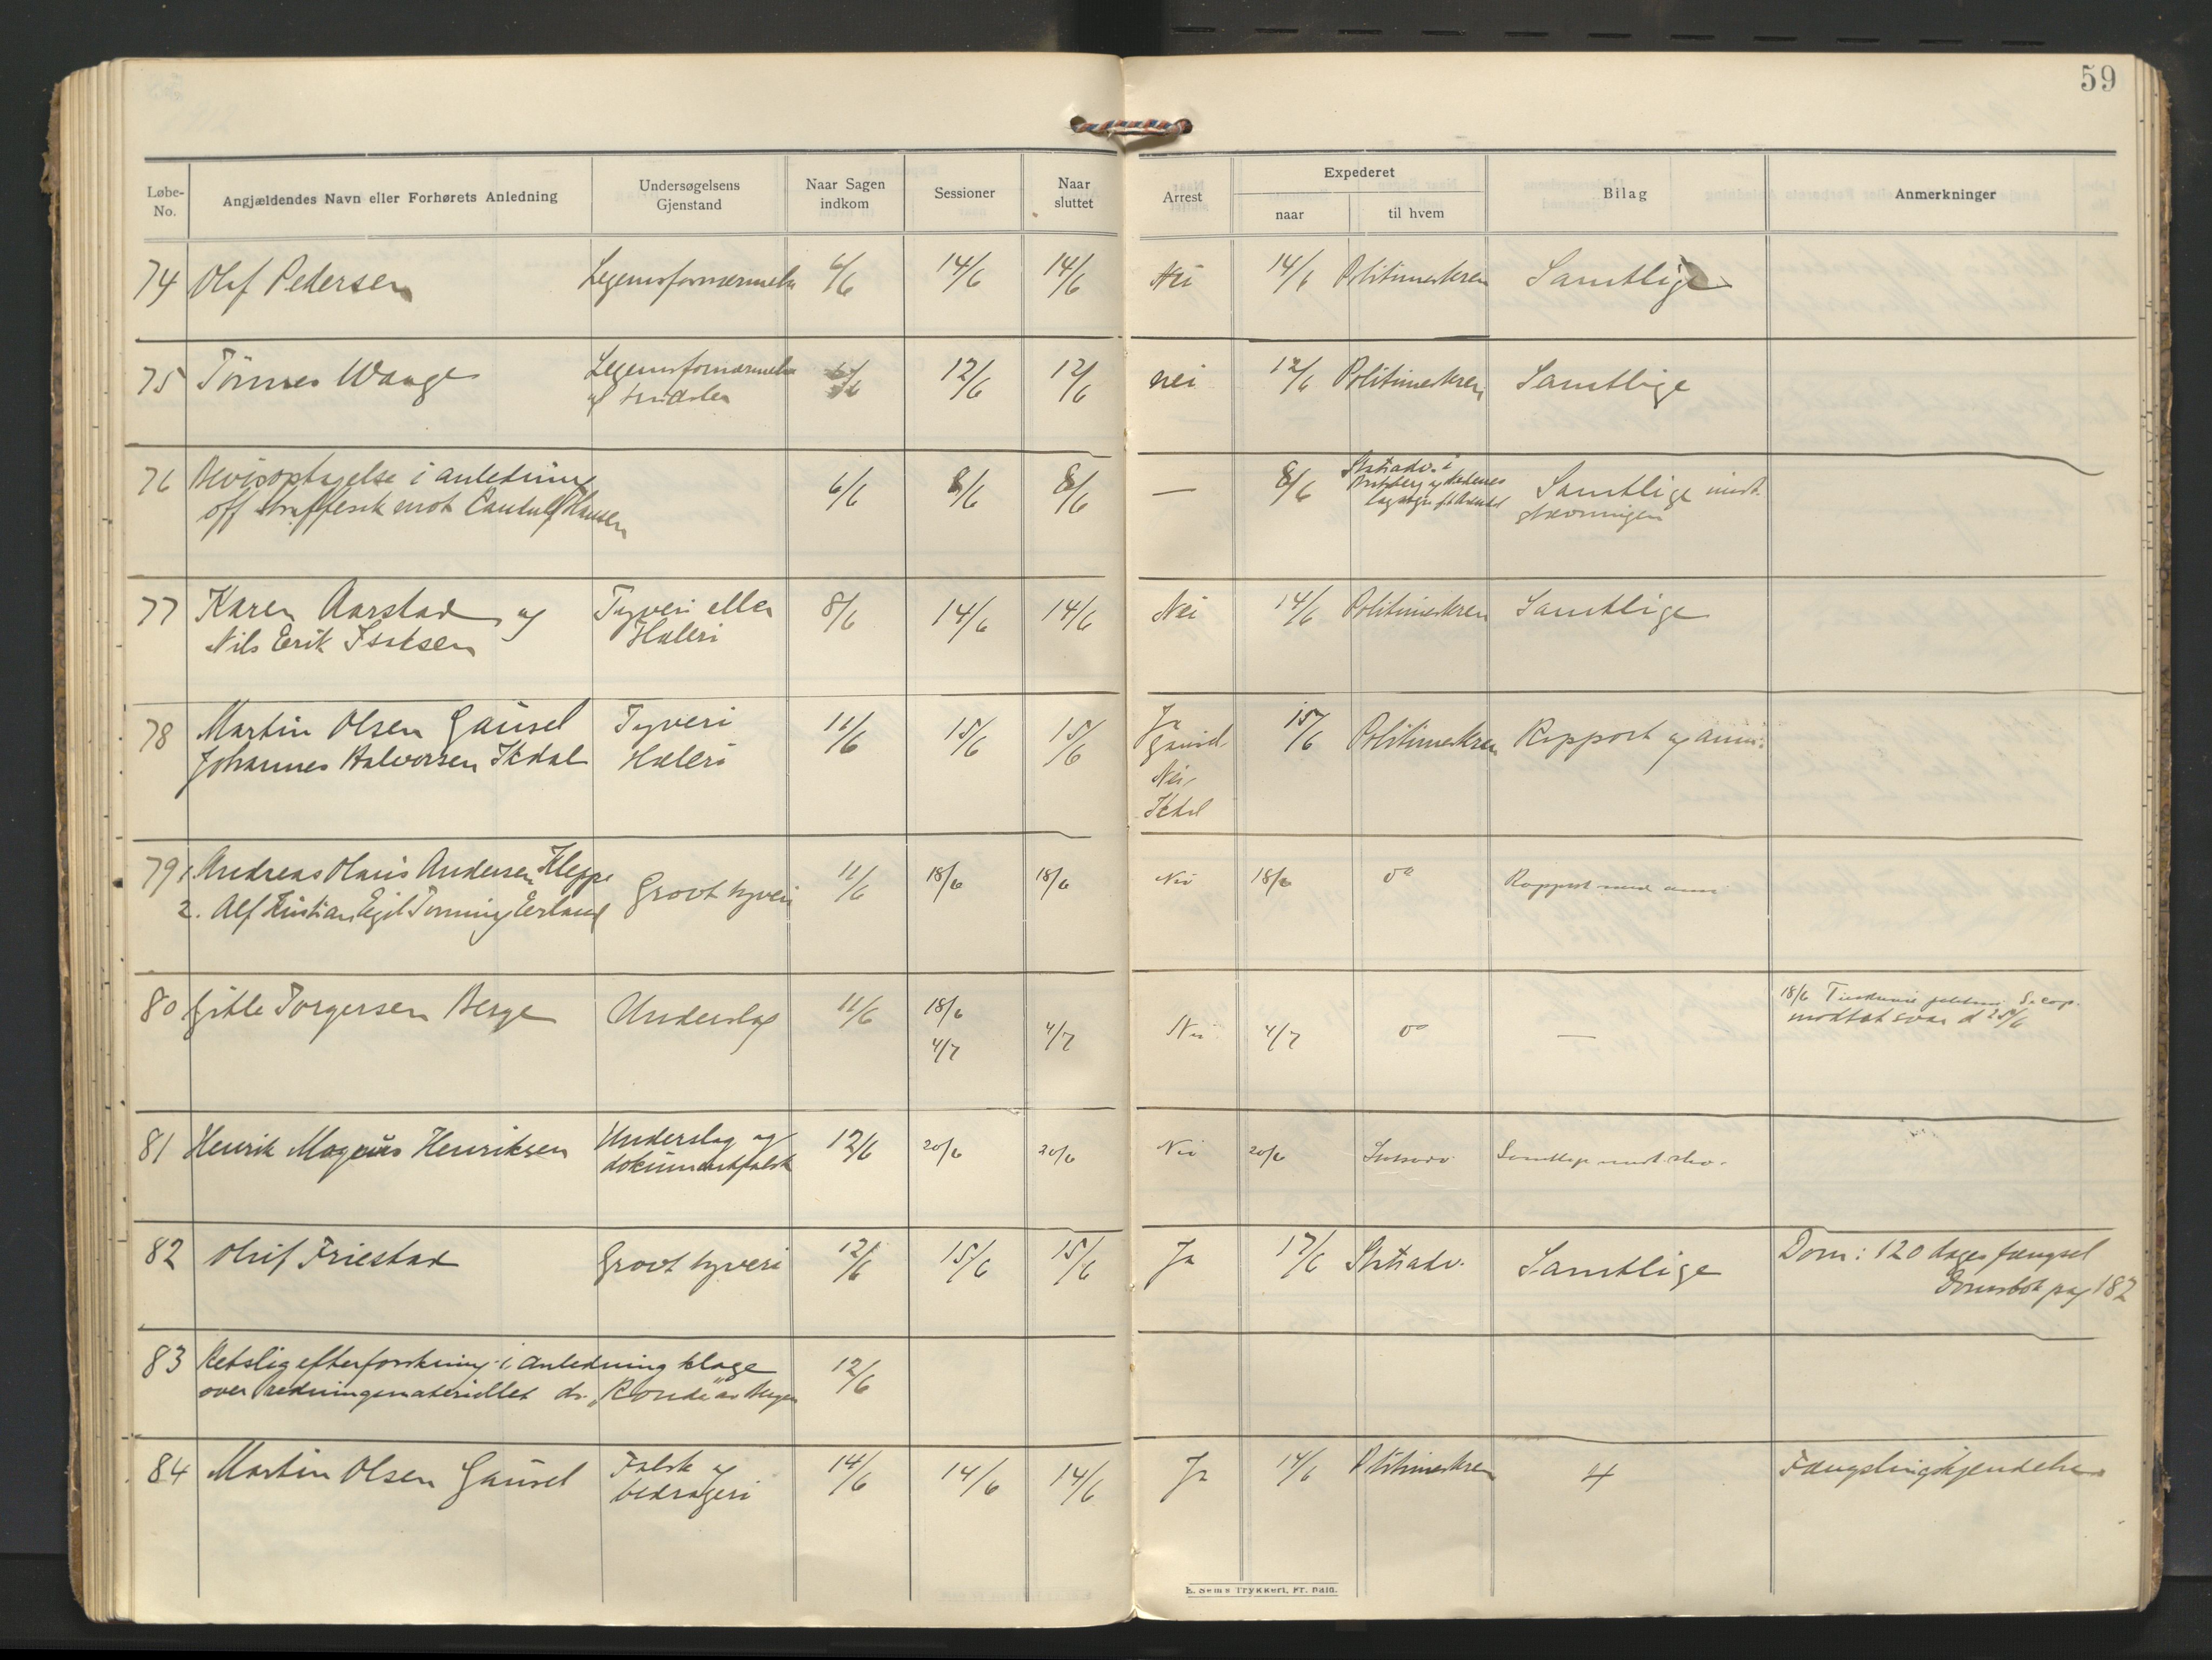 59
Løbe-No. Angjældendes Navn eller Forhørets Anledning Undersøgelsens Gjenstand Naar Sagen indkom Sessioner Naar sluttet Arrest Expederet naar til hvem Bilag Anmerkninger
74 Olaf Pedersen Legemsfornærmelse 6/6 14/6 14/6 Nei 14/6 Politimesteren Samtlige
75 Tönnes Waage Legemsfornærmelse 6/6 12/6 12/6 nei 12/6 Politimesteren Samtlige
og trudsler
76 Bevisoptagelse i anledning 6/6 8/6 8/6 — 8/6 Statsadv. i
off straffesak mot Hansen
lagsogn Samtlige undt.
stævningen
77 Karen Aarstad og Tyveri eller 8/6 14/6 14/6 Nei 14/6 Politimesteren Samtlige
Nils Erik Isaksen Hæleri
78 Martin Olsen Gausel Tyveri 11/6 15/6 15/6 Ja 15/6 Politimesteren Rapport og anm.
Johannes Halvorsen Ikdal Hæleri Gausel
Nei
Ikdal
79 1. Andreas Olaus Andersen Kleppe Grovt tyveri 11/6 18/6 18/6 Nei 18/6 do Rapport med anm.
2. Alf Kristian Egil Tonning Erland
80 Gitle Torgersen Berge Underslag 11/6 18/6 4/7 4/7 Nei 4/7 do — 18/6
motat svar d 25/6
81 Henrik Magnus Henriksen Underslag og 12/6 20/6 20/6 Nei 20/6 Statsadv. Samtlige undt. stev.
dokumentfalsk
82 Olaf Friestad Grovt tyveri 12/6 15/6 15/6 Ja 17/6 Statsadv. Samtlige Dom: 120 dages fængsel
Domsbok pag 182
83 Retslig efterforskning i anledning klage 12/6
over redningsmateriellet ds. "Ronde" av Bergen
84 Martin Olsen Gausel Falsk og 14/6 14/6 14/6 Ja 14/6 Politimesteren 4 Fængslingskjendelse
bedrageri
E. Sems Trykkeri, Fr. hald.